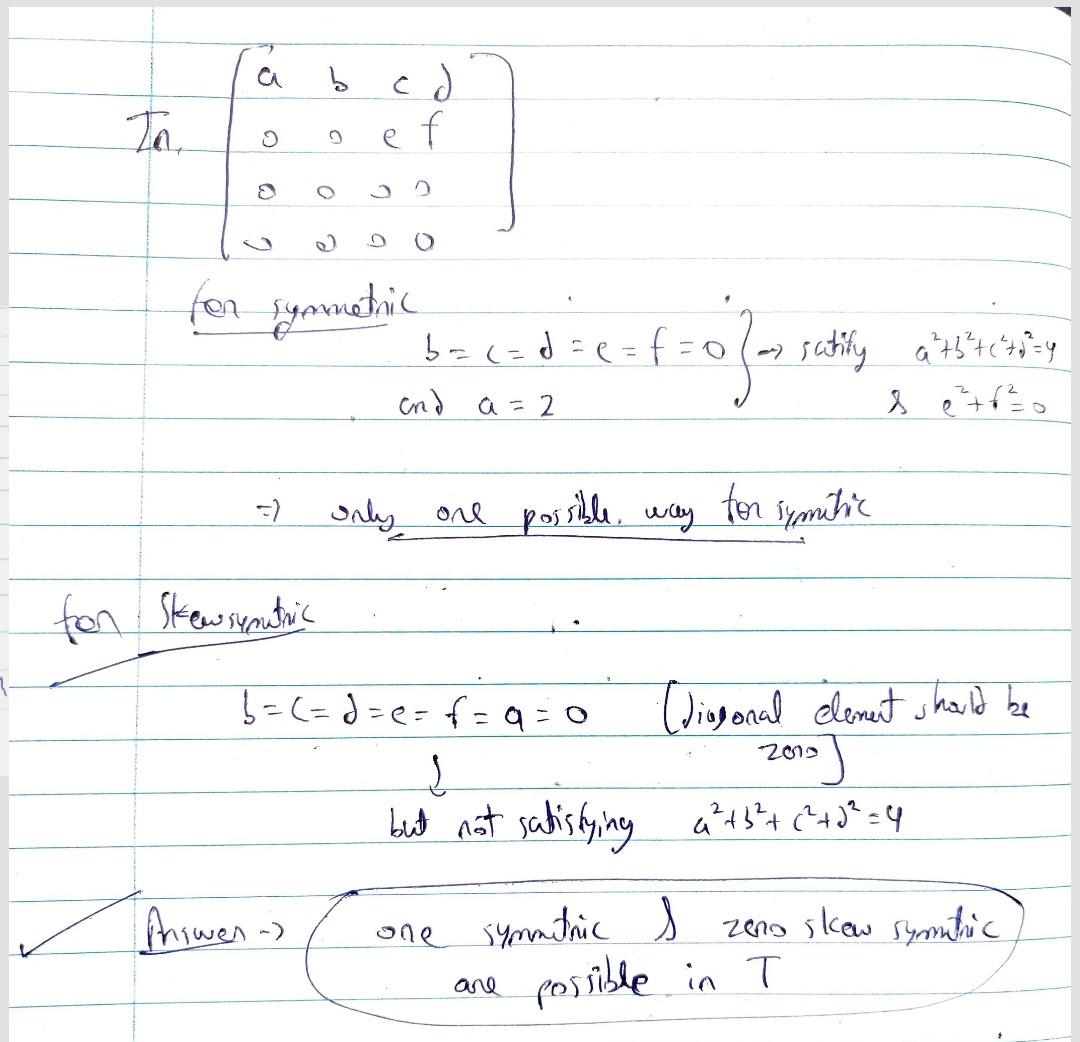 a b c d
In, 0 0 e f
0 0 0 0
0 0 0 0
for symmetric
b = c = d = e = f = 0 } → satify a²+b²+c²+d²=4
and a = 2 & e²+f²=0
=) only one possible. way for symitric
for Skewsymitric
b = c = d = e = f = a = 0 (diagonal element should be
zero]
↓
but not satisfying a²+b²+c²+d²=4
Answer -> one symmtric & zero skew symmtric
are possible in T